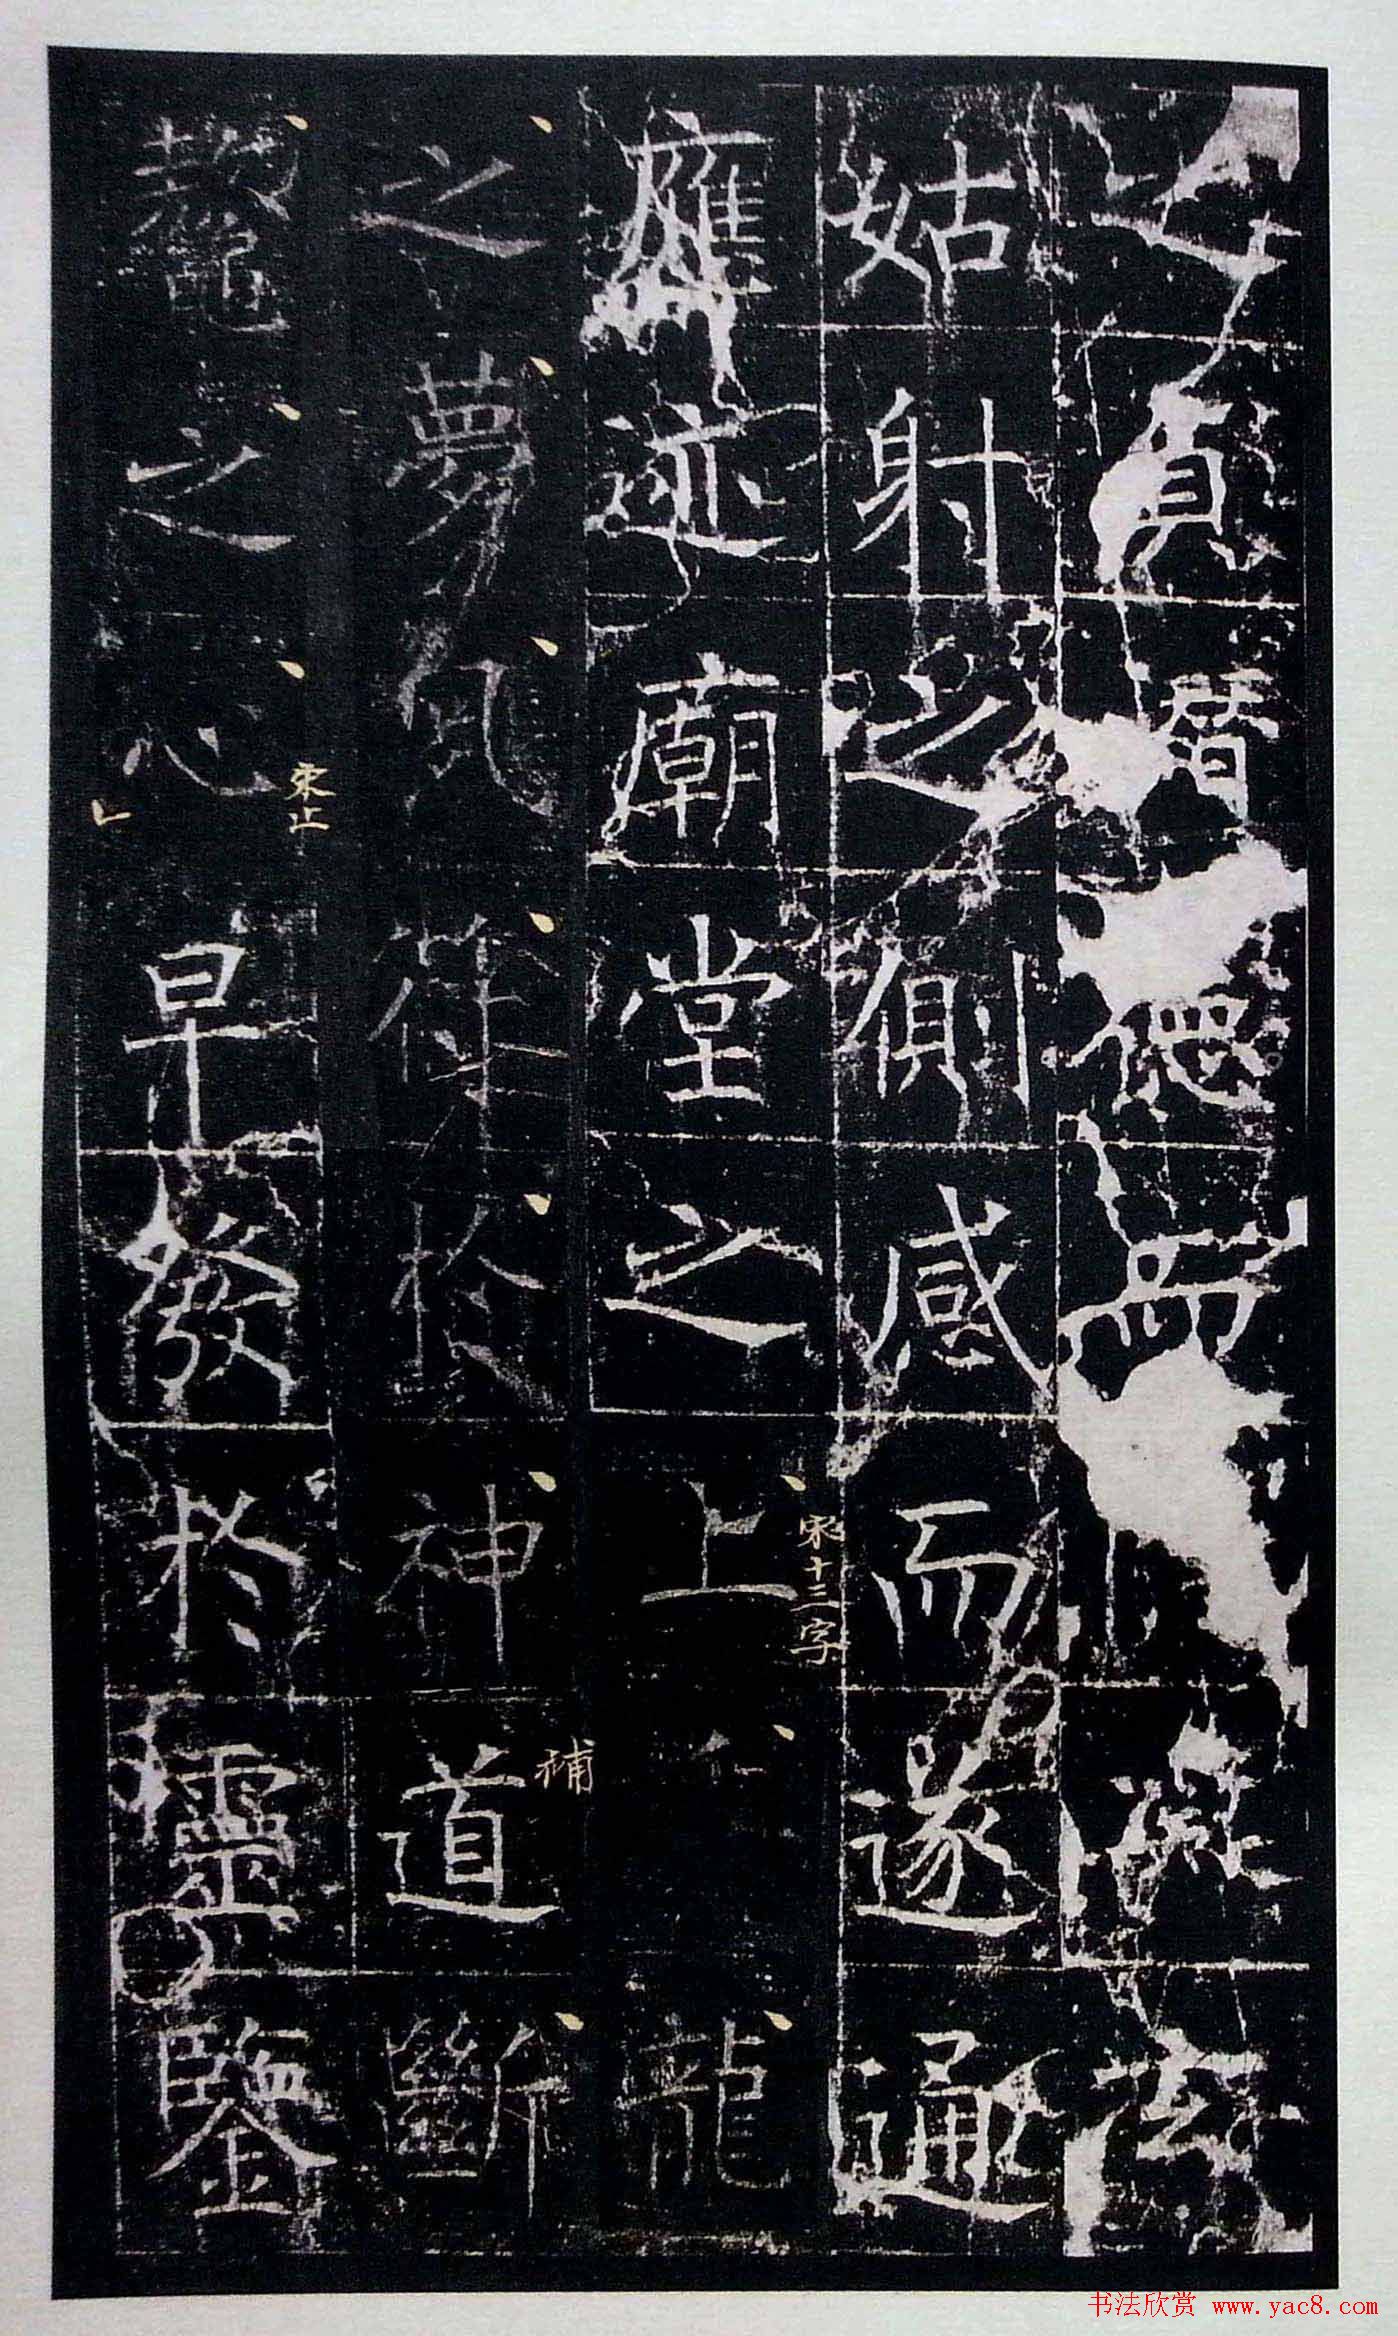 之貞德
姑射之側感而遂通
應迹廟堂之上龍
之夢夙於神道斷
鼇之心早發於靈鑒
宋十三字
補
宋止
书法欣赏 www.yac8.com